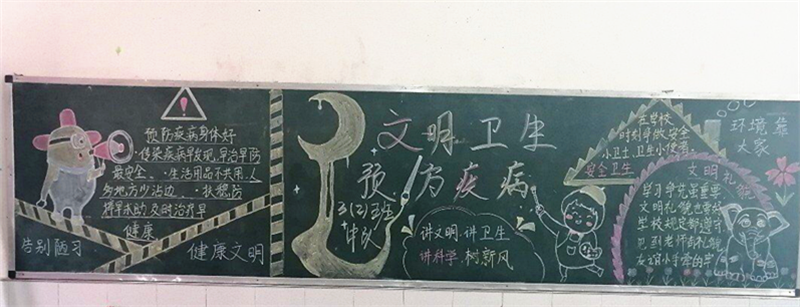 预防疾病身体好
·传染疾病早发现,早治早防
最安全、·生活用品不共用,人
多地方少沾边、·扶稳防
摔早求助,及时治疗早
健康
告别陋习
健康文明
文明卫生
预防疾病
3(2)班
中队
讲文明,讲卫生
讲科学,树新风
在学校
时刻争做安全
小卫士,卫生小使者
安全卫生
环境靠
大家
文明礼貌
学习争先重要
文明礼貌也需
学校规定都遵守
见到老师有礼貌